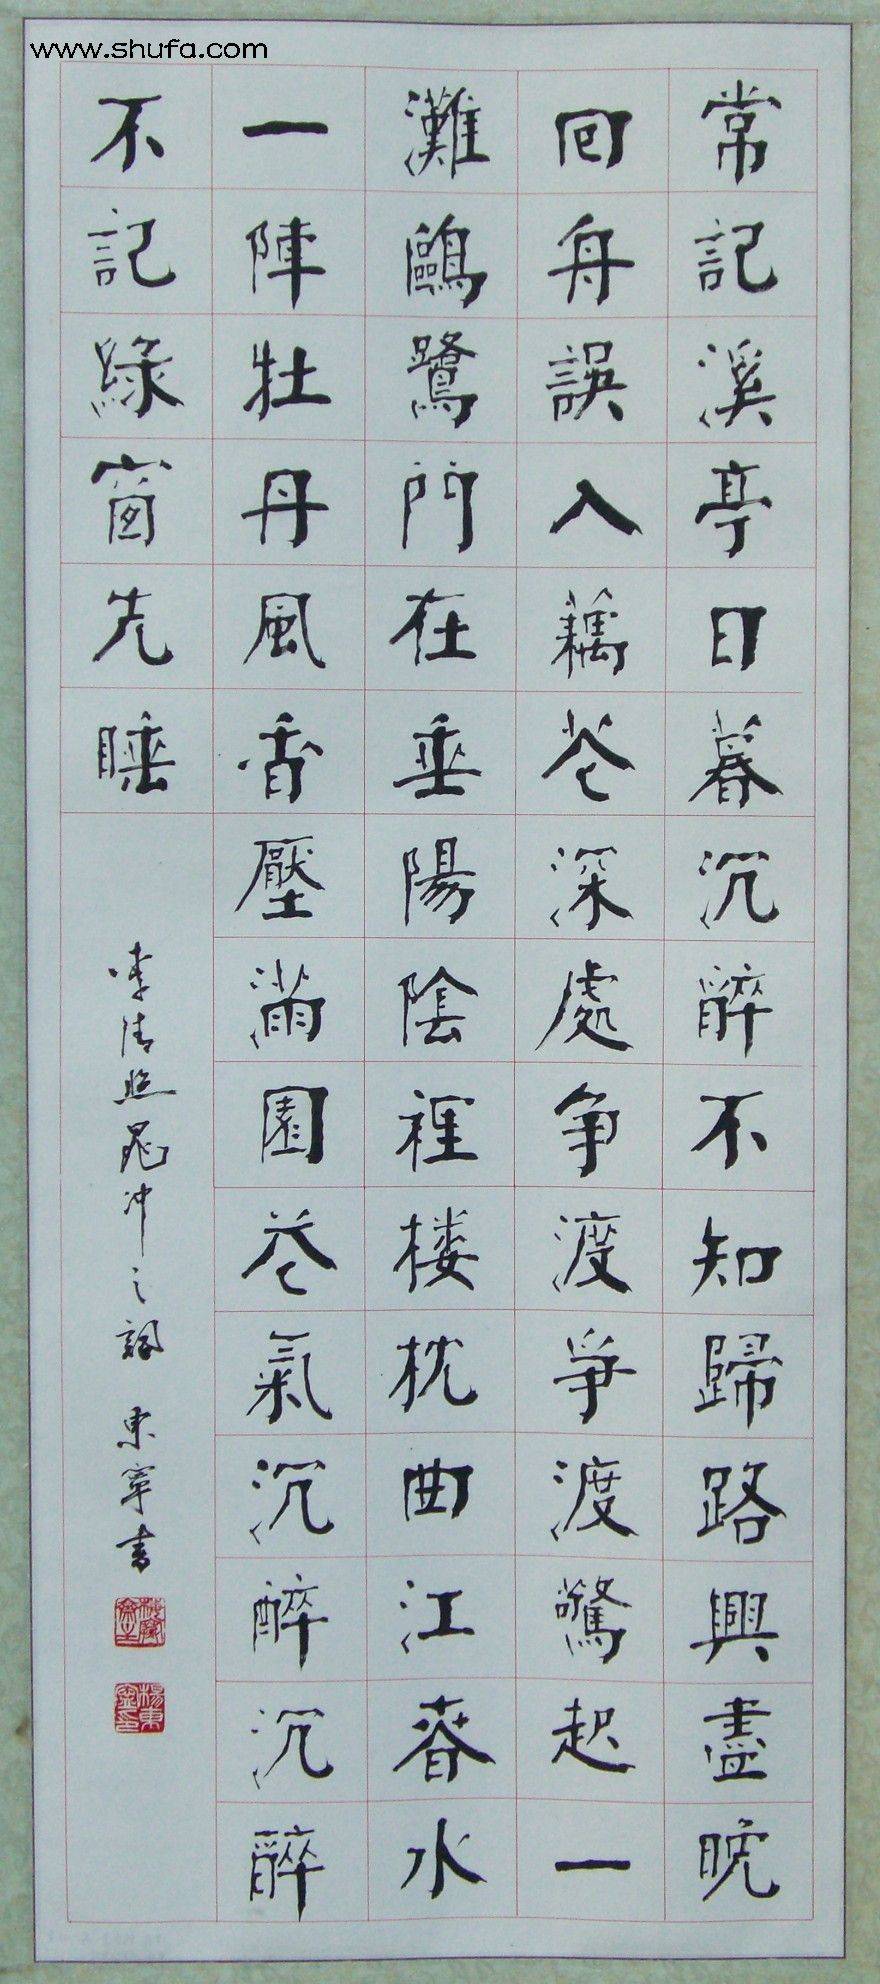 www.shufa.com
常記溪亭日暮沉醉不知歸路興盡晚
回舟誤入藕花深處争渡爭渡驚起一
灘鷗鷺門在垂陽陰裡楼枕曲江春水
一陣牡丹風香壓滿園花氣沉醉沉醉
不記綠窗先睡
李清照晁冲之詞 東寧書